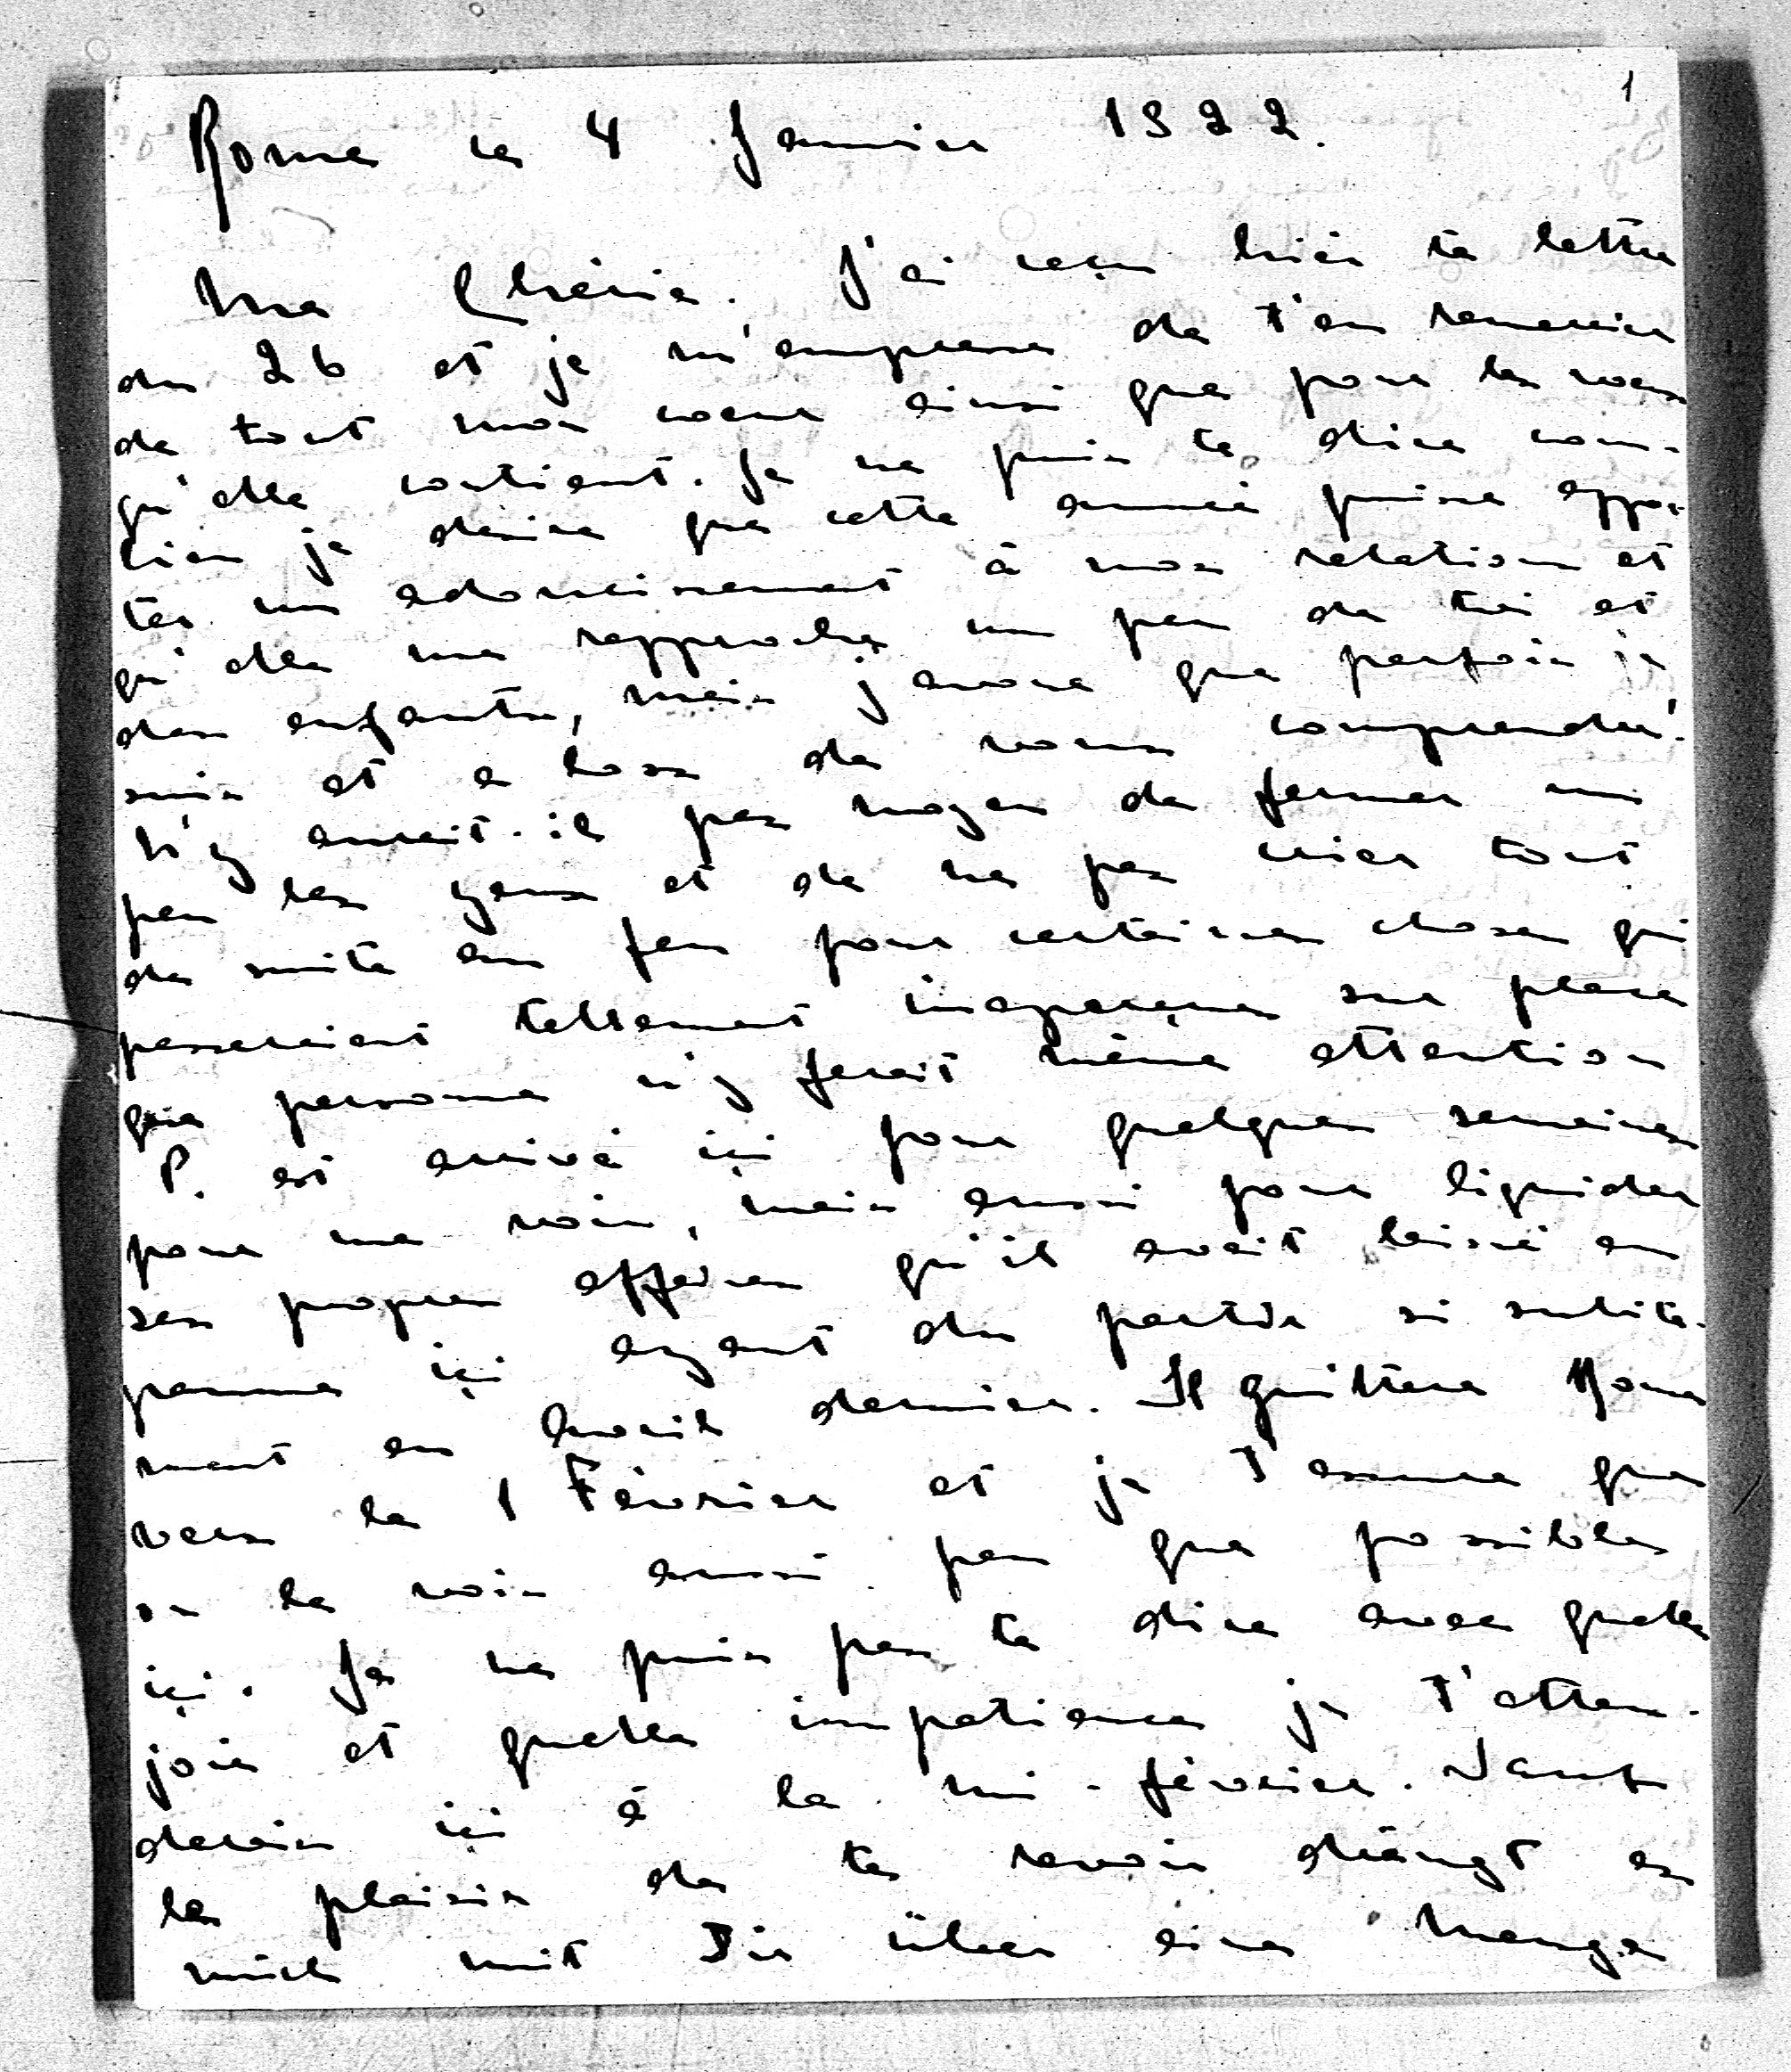 1
Rome le 4 Janvier 1922.
Ma Chérie. J'ai reçu hier ta lettre
du 26 et je m'empresse de t'en remercier
de tout mon coeur ainsi que pour les voeux
qu'elle contient. Je ne puis te dire com-
bien je désire que cette année puisse appor-
ter un adoucissement à nos relations et
qu'elle me rapproche un peu de toi et
des enfants, mais j'avoue que parfois je
suis et a bout de vous comprendre.
N'y aurait-il pas moyen de fermer un
peu les yeux et de ne pas crier tout
de suite au feu pour certaines choses qui
passeraient tellement inaperçues sur place
que personne n'y ferait même attention
P. est arrivé içi pour quelques semaines
pour me voir, mais aussi pour liquider
ses propres affaires qu'il avait laissé en
panne içi ayant du partir si subite-
ment en Avril dernier. Il quittera Rome
vers le 1 Février et je t'assure que
on le voit aussi peu que possible
içi. Je ne puis pas te dire avec quelle
joie et quelle impatience je t'atten-
derais içi à la mi-février. Sauf
le plaisir de te revoir drängt es
mich mit Dir über eine Menge